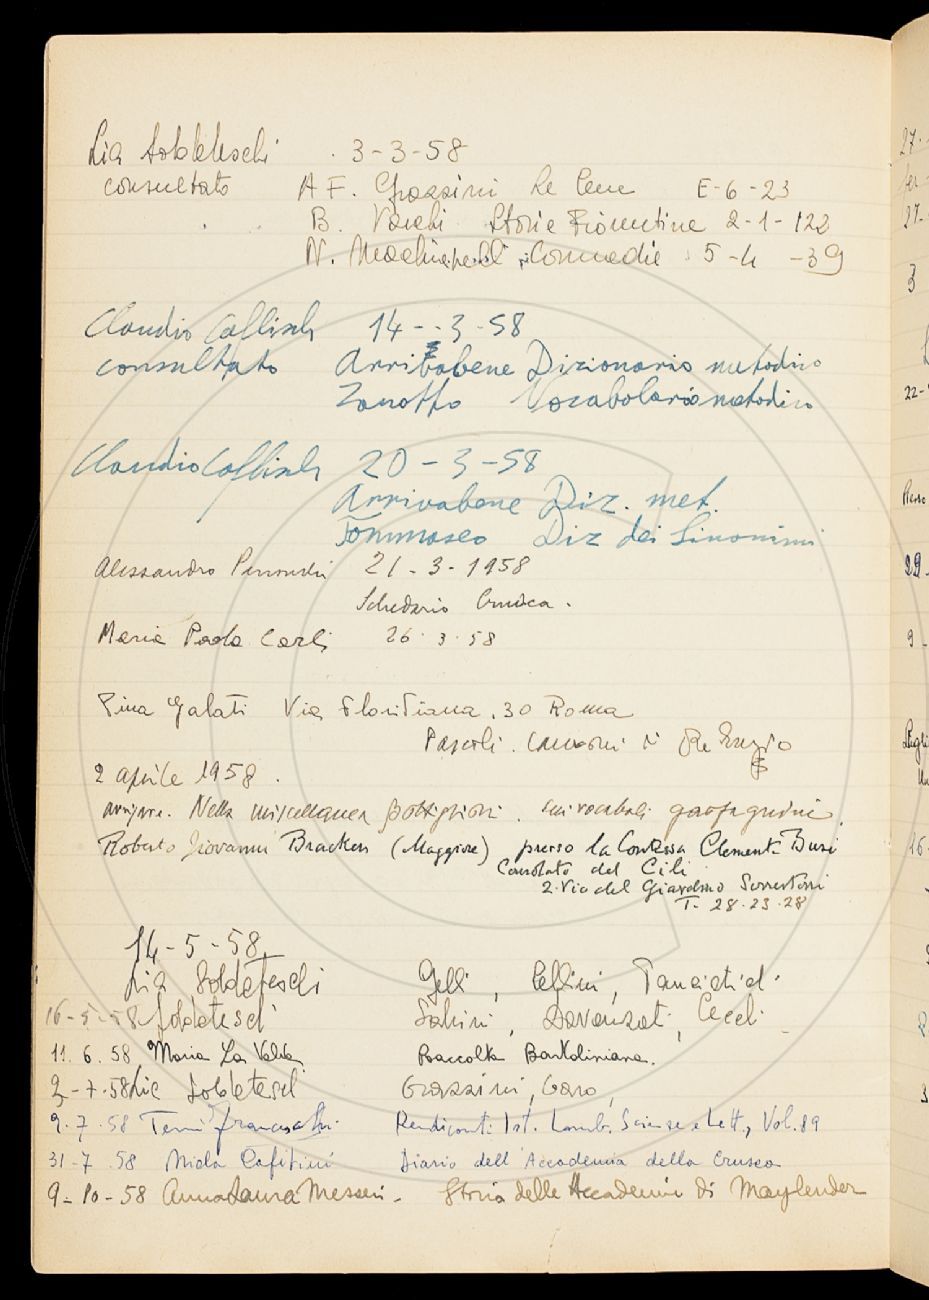 Lia Soldateschi 3-3-58
consultato A F. Grazzini Le Cene E-6-23
B. Varchi Storie Fiorentine 2-1-122
N. Machiavelli Commedie 5-4-39
Claudio Caflisch 14-3-58
consultato Arrivabene Dizionario metodico
Zanotto Vocabolario metodico
Claudio Caflisch 20-3-58
Arrivabene Diz. met.
Tommaseo Diz dei Sinonimi
Alessandro 21-3-1958
Schedario Crusca.
Maria Paola Carli 26.3.58
Pina Galati Via Floridiana, 30 Roma
Pascoli. Canzoni di Re Enzio
2 aprile 1958.
Nella miscellanea Bottiglioni. sui vocaboli garfagnini.
Roberto Giovanni Bracken (Maggiore) presso la Contessa Clementi Busi
Consolato del Cili
2. Via del Giardino Serristori
T. 28.23.28
14-5-58
Lia Soldateschi Gelli, Cellini, Panciatichi
16-5-58 Soldateschi Salvini, Davanzati, Cecchi
11.6.58 Maria La Valva Raccolta Bartoliniana.
2-7-58 Lia Soldateschi Grazzini, Caro,
9.7.58 Rendiconti Ist. Lomb. Scienze e Lett., Vol. 89
31-7 58 Diario dell'Accademia della Crusca
9-10-58 Anna Laura Messeri - Storia delle Accademie di Maylender